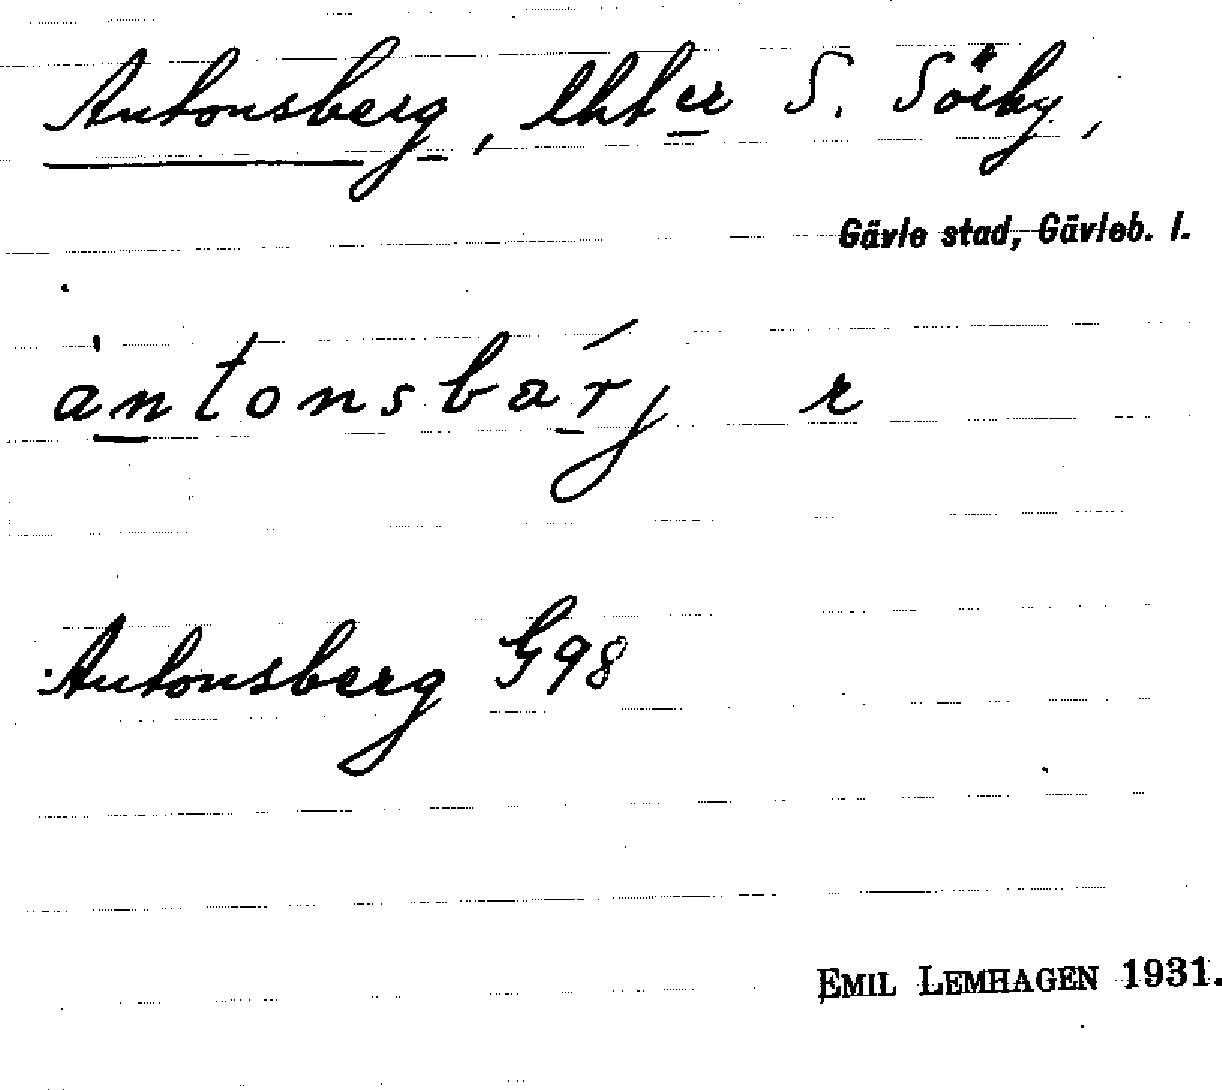 Antonsberg, lht er S. Sörby,
Gävle stad, Gävleb. l.
àntonsbaŕ̨j r
Antonsberg G98
EMIL LEMHAGEN 1931.